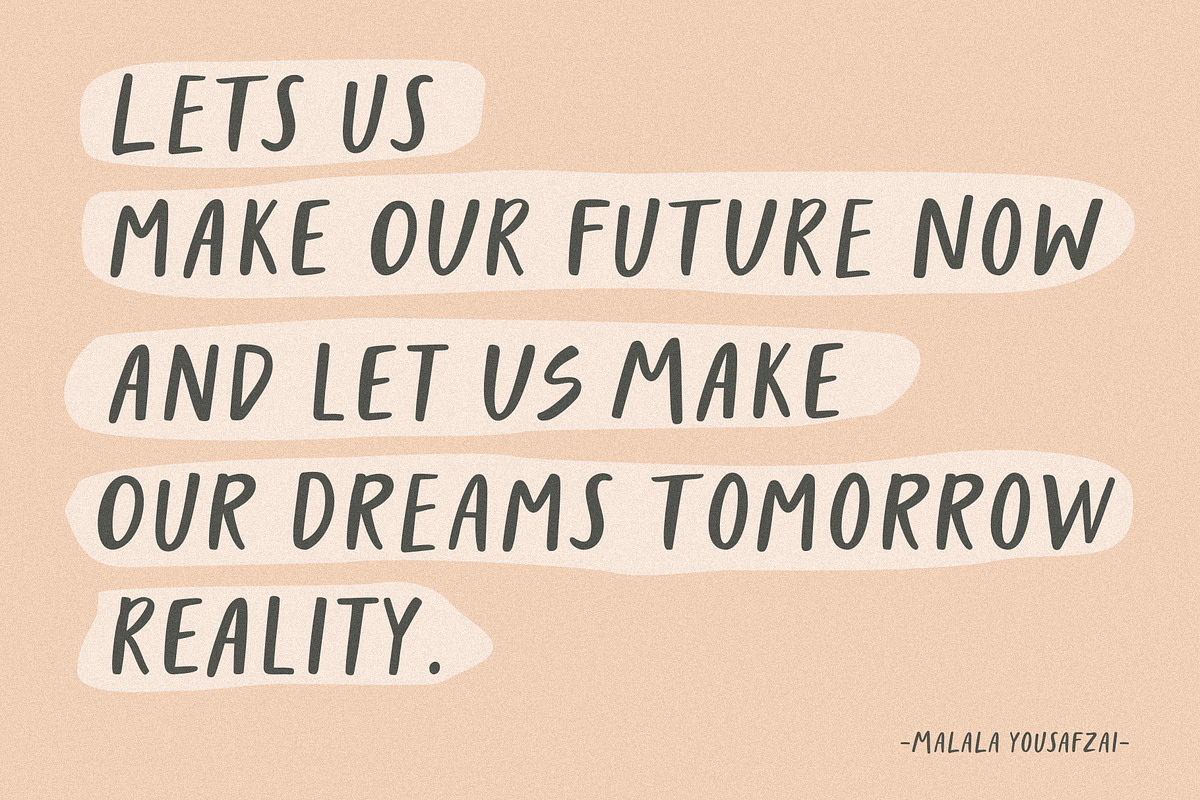 LETS US
MAKE OUR FUTURE NOW
AND LET US MAKE
OUR DREAMS TOMORROW
REALITY.
-MALALA YOUSAFZAI-